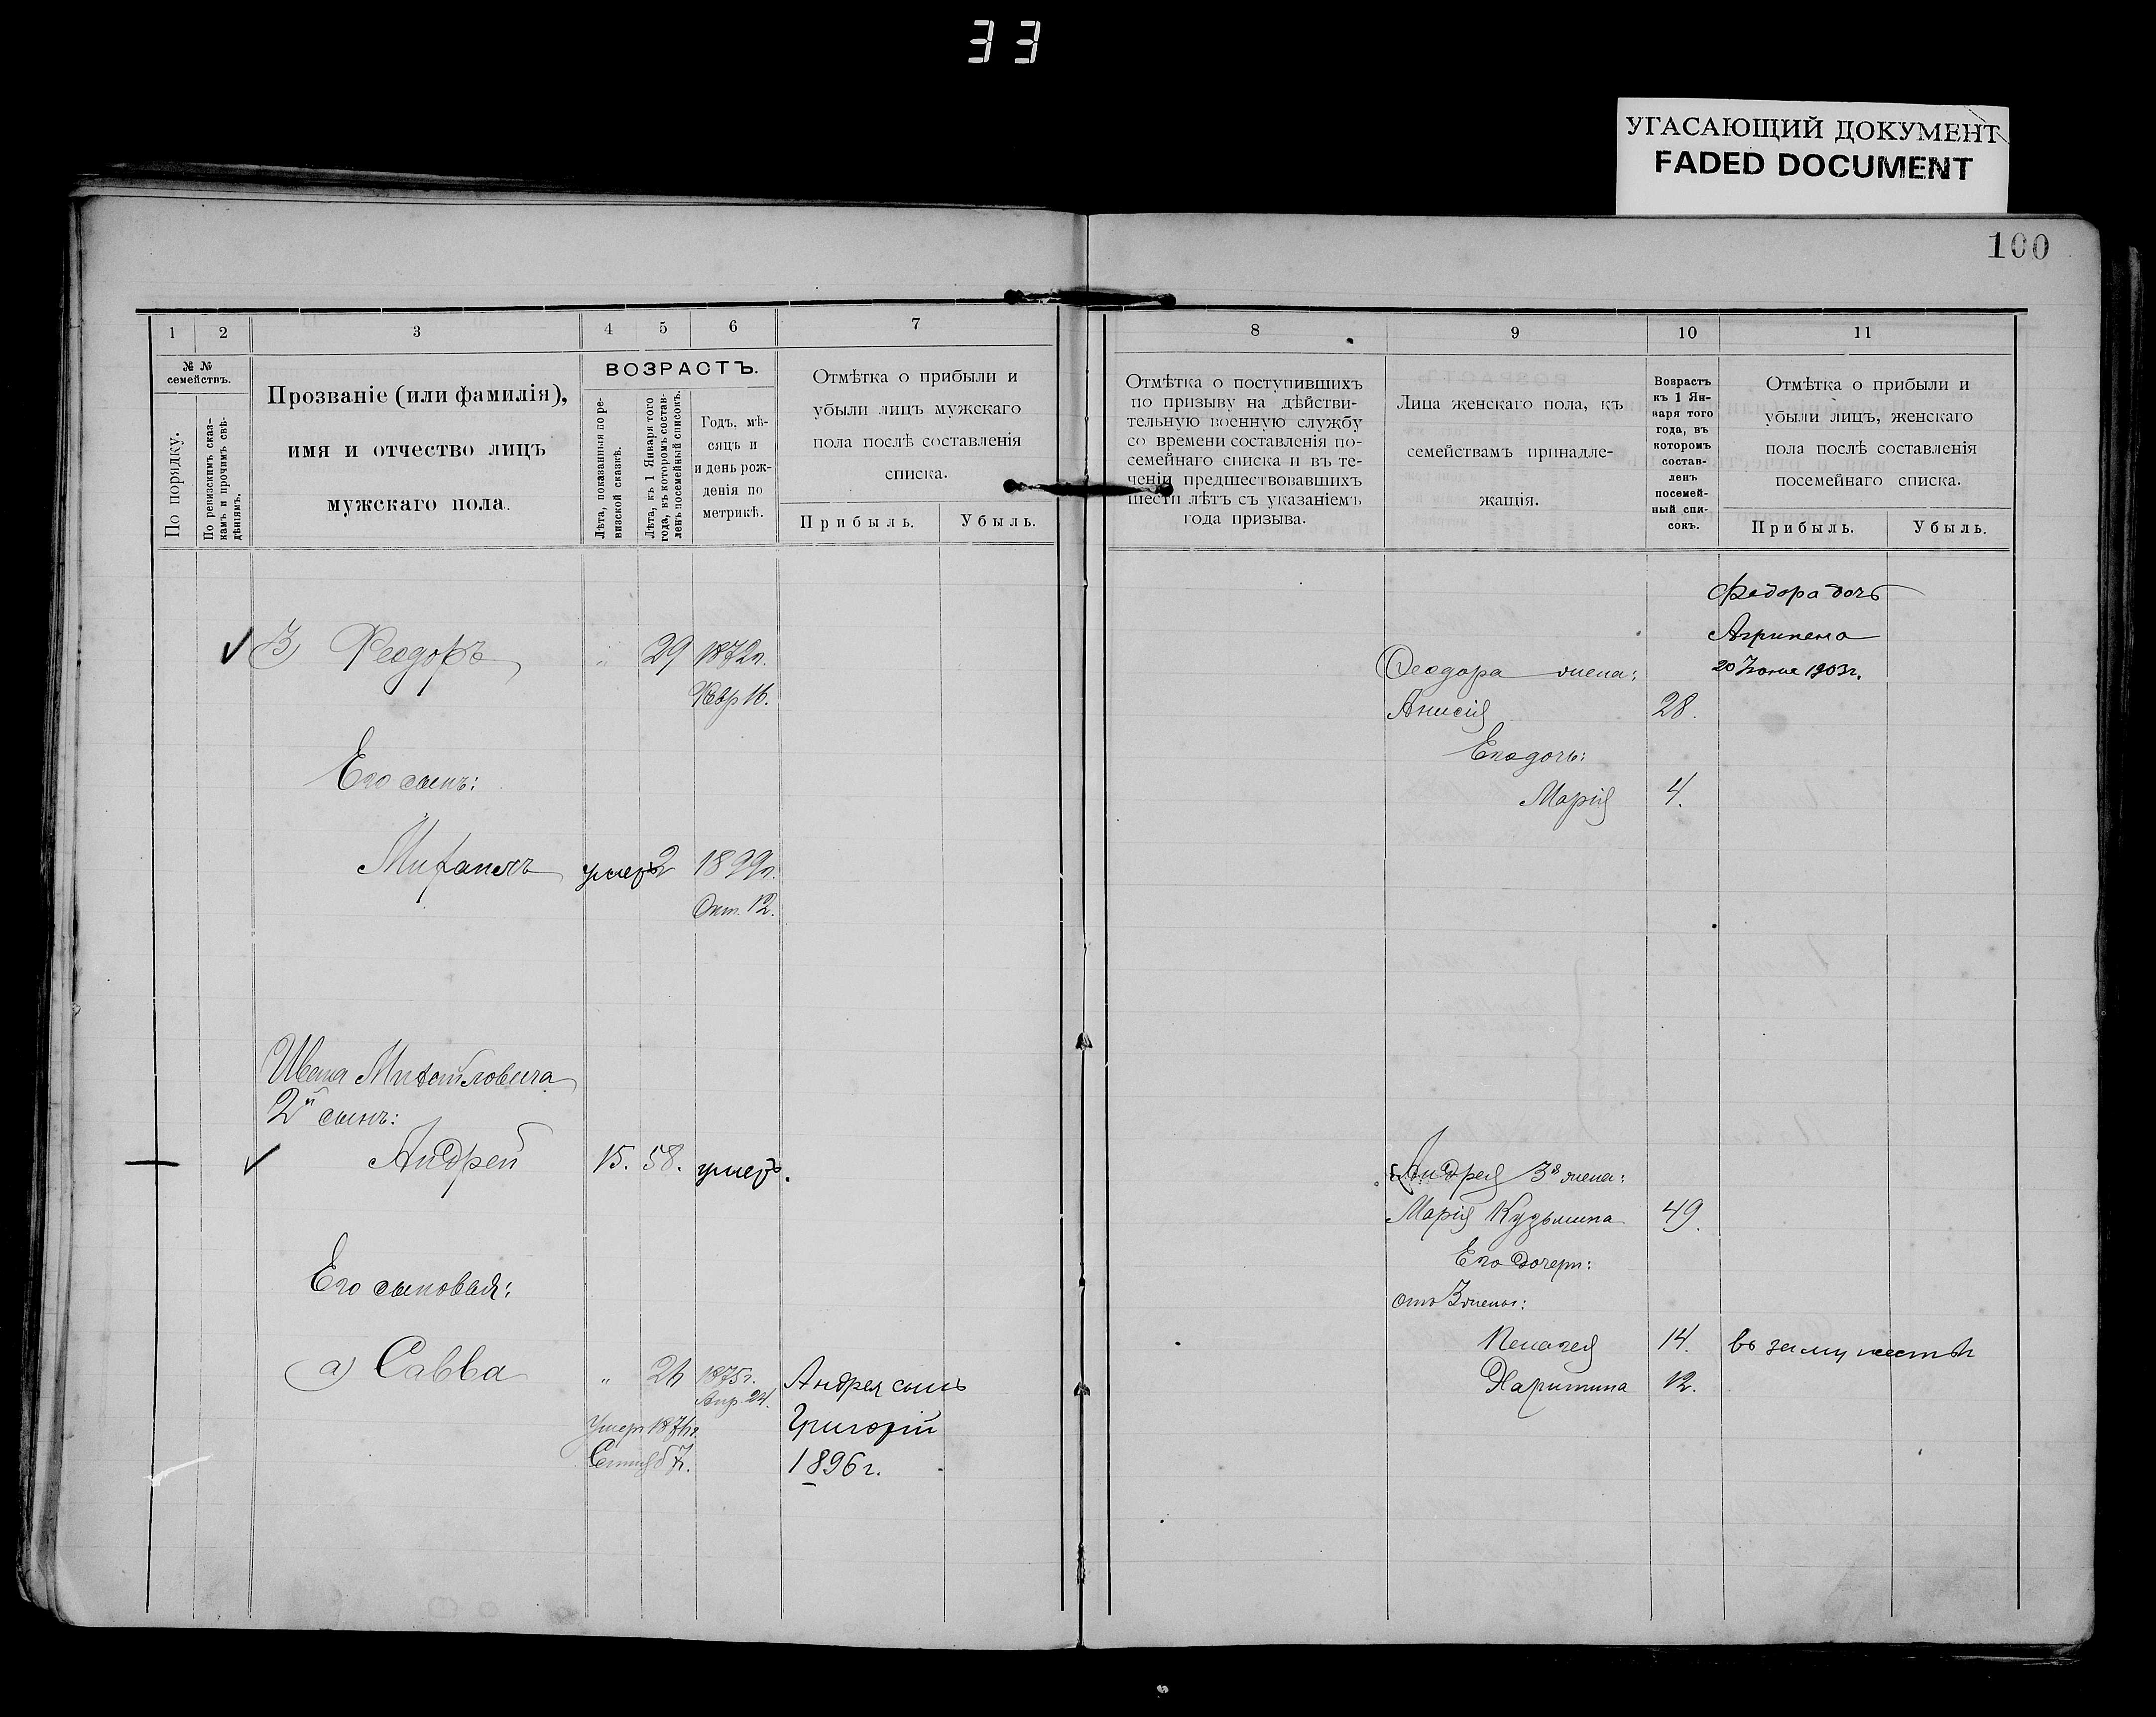 33
УГАСАЮЩИЙ ДОКУМЕНТ
FADED DOCUMENT
100
1 2 3 4 5 6 7
№ №
семействъ.
По порядку.
По ревизскимъ сказ-
камъ и прочимъ свѣ-
дѣніямъ.
Прозваніе (или фамилія),
имя и отчество лицъ
мужскаго пола.
ВОЗРАСТЪ.
Лѣта, показанныя по ре-
визской сказкѣ.
Лѣта, къ 1 Января того
года, въ которомъ состав-
ленъ посемейный списокъ.
Годъ, мѣ-
сяцъ и
и день рож-
денія по
метрикѣ.
Отмѣтка о прибыли и
убыли лицъ мужскаго
пола послѣ составленія
списка.
Прибыль. Убыль.
3) Феодоръ " 29 1872г.
Февр 16.
Его сынъ:
Михаилъ умеръ 2 1899г.
Окт. 12.
Ивана Михайловича
2й сынъ:
Андрей 15. 58. умеръ.
Его сыновья:
а) Савва " 26 1875г.
Апр. 24.
Андрея сынъ
Григорій
1896г.
8 9 10 11
Отмѣтка о поступившихъ
по призыву на дѣйстви-
тельную военную службу
со времени составленія по-
семейнаго списка и въ те-
ченіи предшествовавшихъ
шести лѣтъ съ указаніемъ
года призыва.
Лица женскаго пола, къ
семействамъ принадле-
жащія.
Возрастъ
къ 1 Ян-
варя того
года, въ
которомъ
состав-
ленъ
посемей-
ный спи-
сокъ.
Отмѣтка о прибыли и
убыли лицъ, женскаго
пола послѣ составленія
посемейнаго списка.
Прибыль. Убыль.
Федора дочь
Агрипена
20 Іюня 1903г.
Феодора жена:
Анисія 28.
Его дочь:
Марія 4.
Андрея 3я жена:
Марія Кузьмина 49.
Его дочери:
отъ 3 жены:
Пелагея 14. въ замужествѣ
Харитина 12.